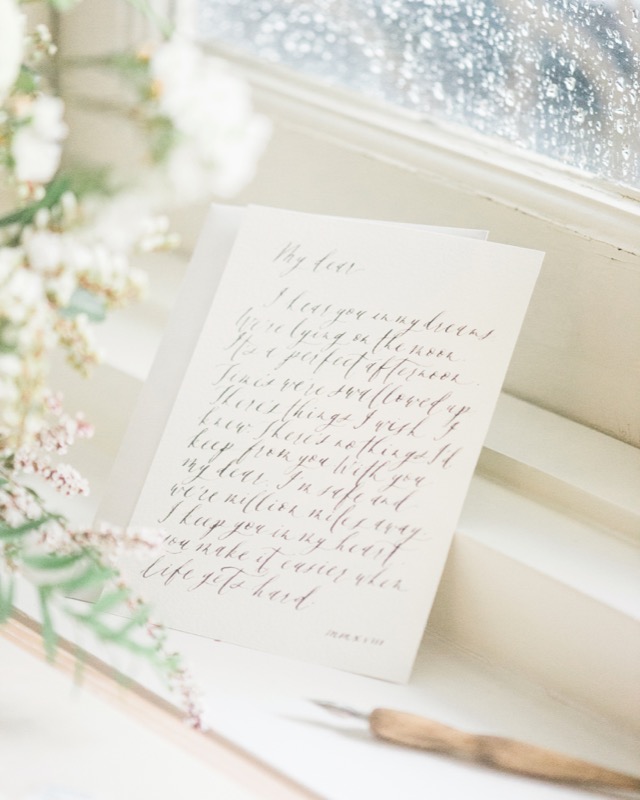 My dear
I hear you in my dreams
We're lying on the moon
It's a perfect afternoon.
were swallowed up
There's things I wish I
knew. There's no things I'd
keep from you With you
my dear, I'm safe and
we're million miles away
I keep you in my heart
you make it easier when
life gets hard.